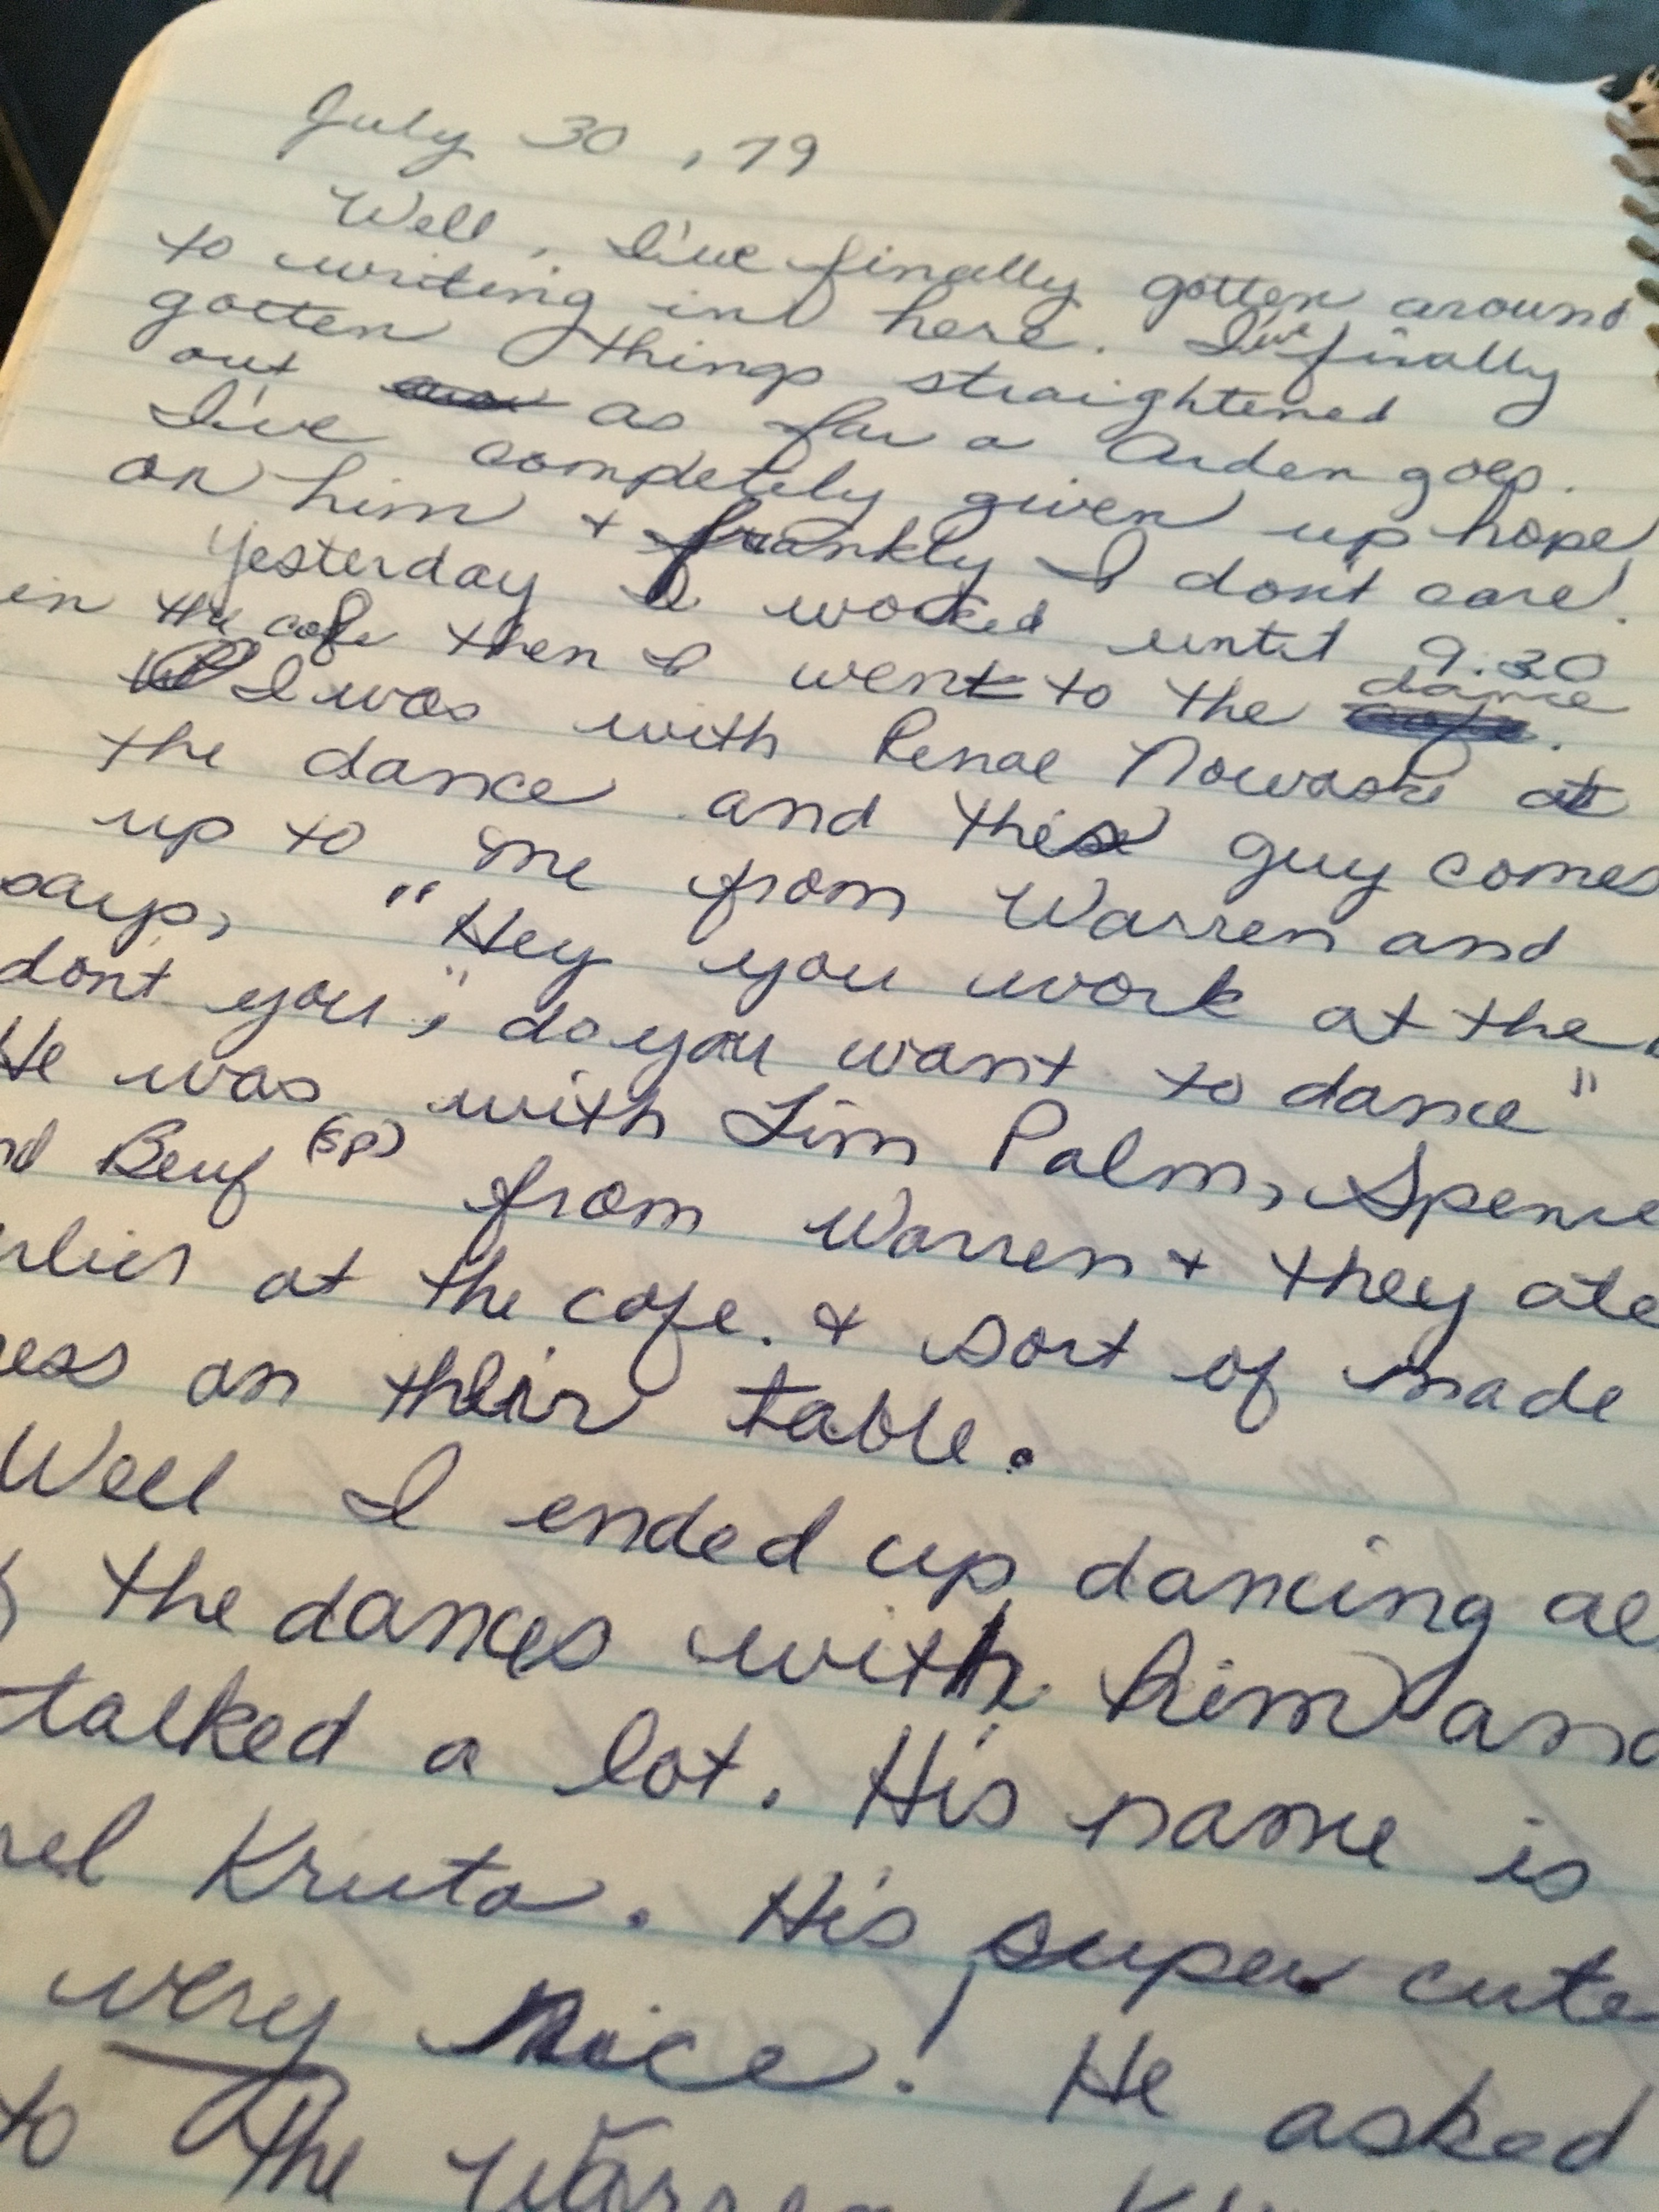 July 30, 79
Well, I've finally gotten around
to writing in here. I've finally
gotten things straightened
out as far a Arden goes.
I've completely given up hope
on him + frankly I don't care!
Yesterday I worked until 9:30
in the cafe then I went to the dance.
I was with Renae Nowaski at
the dance and this guy comes
up to me from Warren and
says, "Hey you work at the
dont you", do you want to dance"
He was with Jim Palm, Spence
nd Beuf (sp) from Warren + they ate
rlier at the cafe. + sort of made
ess on their table.
Well I ended up dancing al
the dances with him and
talked a lot. His name is
rel Kruta. His super cute
very nice! He asked
to the Warren